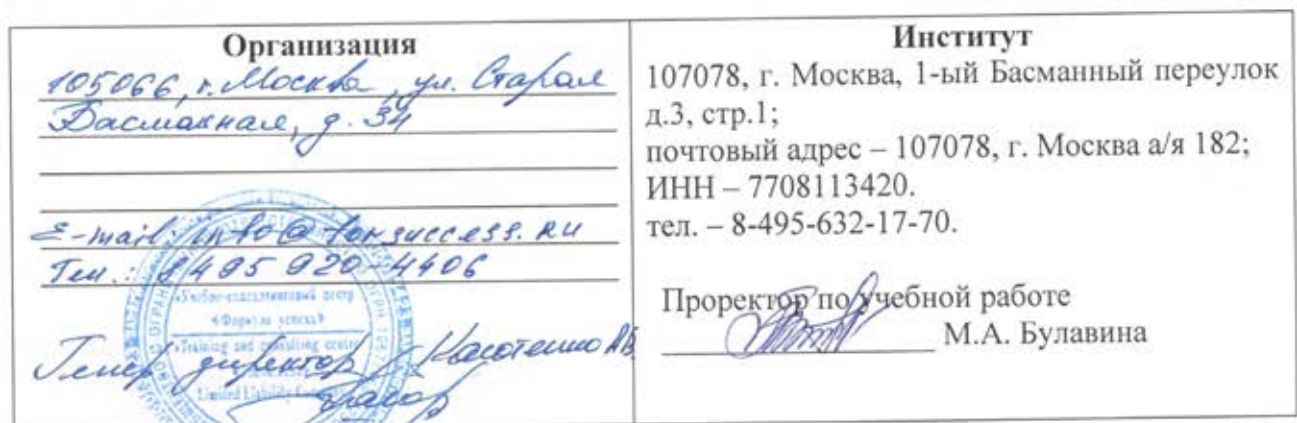 Организация
105066, г. Москва, ул. Старая
Басманная, д. 34
E-mail: info@forsuccess.ru
Тел.: 8 495 920-4406
«Учебно-консалтинговый центр
«Формула успеха»
«Training and consulting centre
Limited Liability
Генер директор
Институт
107078, г. Москва, 1-ый Басманный переулок
д.3, стр.1;
почтовый адрес – 107078, г. Москва а/я 182;
ИНН – 7708113420.
тел. – 8-495-632-17-70.
Проректор по учебной работе
М.А. Булавина